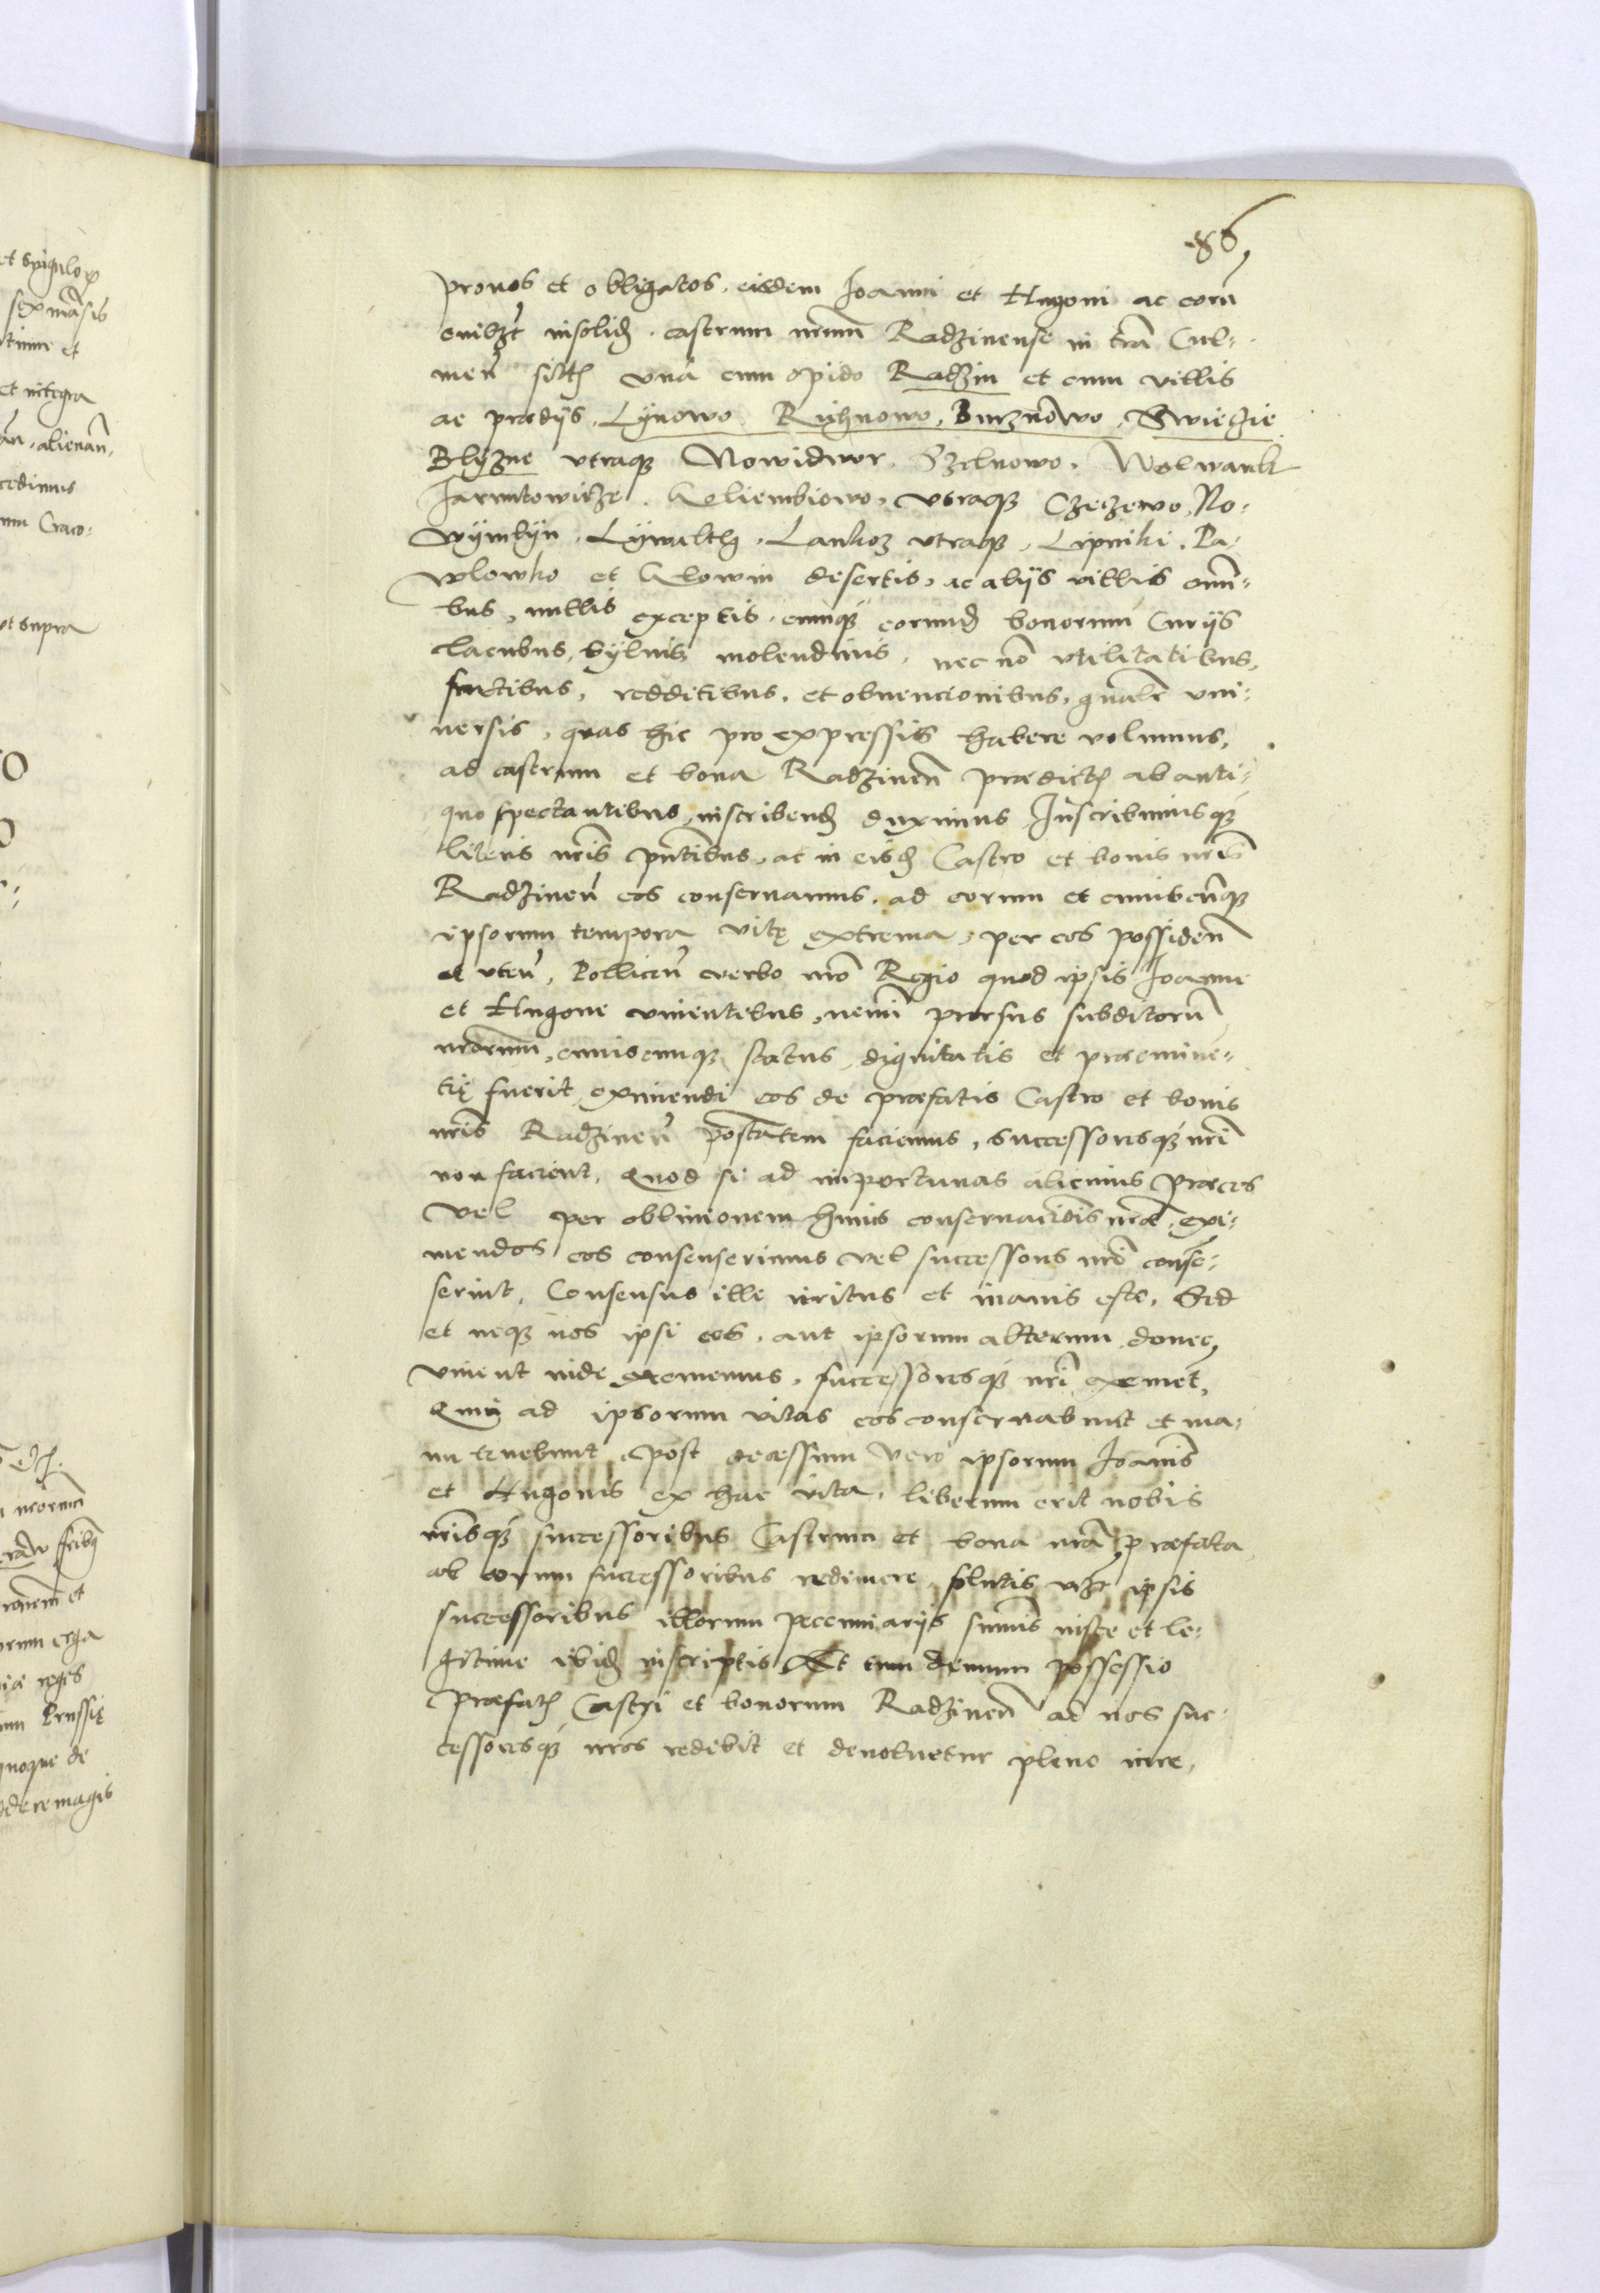 86
pronos et obligatos, eisdem Joanni et Hugoni ac eorū
cuilibet insolid. castrum nrum Radzinense in tra Cul-
men sith unà cum opido Radzin et cum villis
ac prædijs, Lynowo Richnowo, Burznowo, Swieczie
Blyzne utraq Nowidwor, Szelnowo, Wolwark
Jarmtowicze, Goliembiowo, utraq Czeczewo, No-
wymlyn, Lywalth, Lankoz utraq, Lipniki, Pa-
wlowko et Klowin desertis, ac alijs villis omni-
bus, nullis exceptis, cumq eorund bonorum Curijs
lacubus, sylvis molendinis, nec nō utilitatibus,
fructibus, redditibus, et obuencionibus, gnalr uni-
uersis, quas hic pro expressis habere volumus,
ad castrum et bona Radzinen prædicth ab anti-
quo spectantibus, inscribend duximus Inscribimusq
literis nris pntibus, ac in eisd Castro et bonis nris
Radzinen eos conseruamus, ad eorum et cuiuscunq
ipsorum tempora vitę extrema, per eos possiden
et uten, Pollicen verbo nro Regio quod ipsis Joanne
et Hugone viuentibus, nemini prorsus subditorū
nrorum, cuiuscunq status, dignitatis et præminē-
tię fuerit, eximendi eos de præfatis Castro et bonis
nris Radzinen potestatem faciemus, successoresq nri
non facient, Quod si ad importunas alicuius præces
vel per obliuionem huius conseruacionis nræ, exi-
mendos eos consenserimus vel successores nri consē-
serint, Consensus ille irritus et inanis esto, Sed
et neq nos ipsi eos, aut ipsorum alterum, donec
viuent inde eximemus, successoresq nri eximēt,
Quin ad ipsorum vitas eos conseruabunt et ma-
nu tenebunt, Post decessum vero ipsorum Joanis
et Hugonis ex hac vita, liberum erit nobis
nrisq successoribus Castrum et bona nra præfata
ab eorum successoribus redimere, solutis vizt ipsis
successoribus illorum pecuniarijs summis iuste et le-
gitime ibid inscriptis, Et tum demum possessio
præfath Castri et bonorum Radzinen ad nos suc-
cessoresq nros redibit et deuoluetur pleno iure,